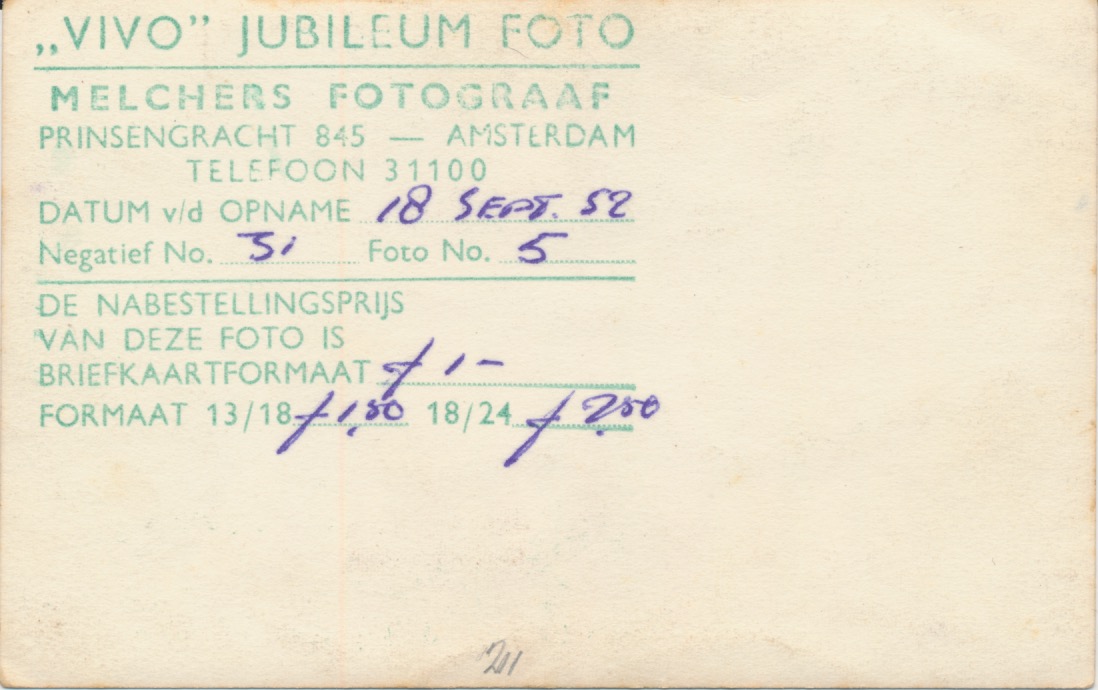 „VIVO” JUBILEUM FOTO
MELCHERS FOTOGRAAF
PRINSENGRACHT 845 — AMSTERDAM
TELEFOON 31100
DATUM v/d OPNAME 18 SEPT. 52
Negatief No. 31 Foto No. 5
DE NABESTELLINGSPRIJS
VAN DEZE FOTO IS
BRIEFKAARTFORMAAT f 1-
FORMAAT 13/18 f 1,50 18/24 f 2,50